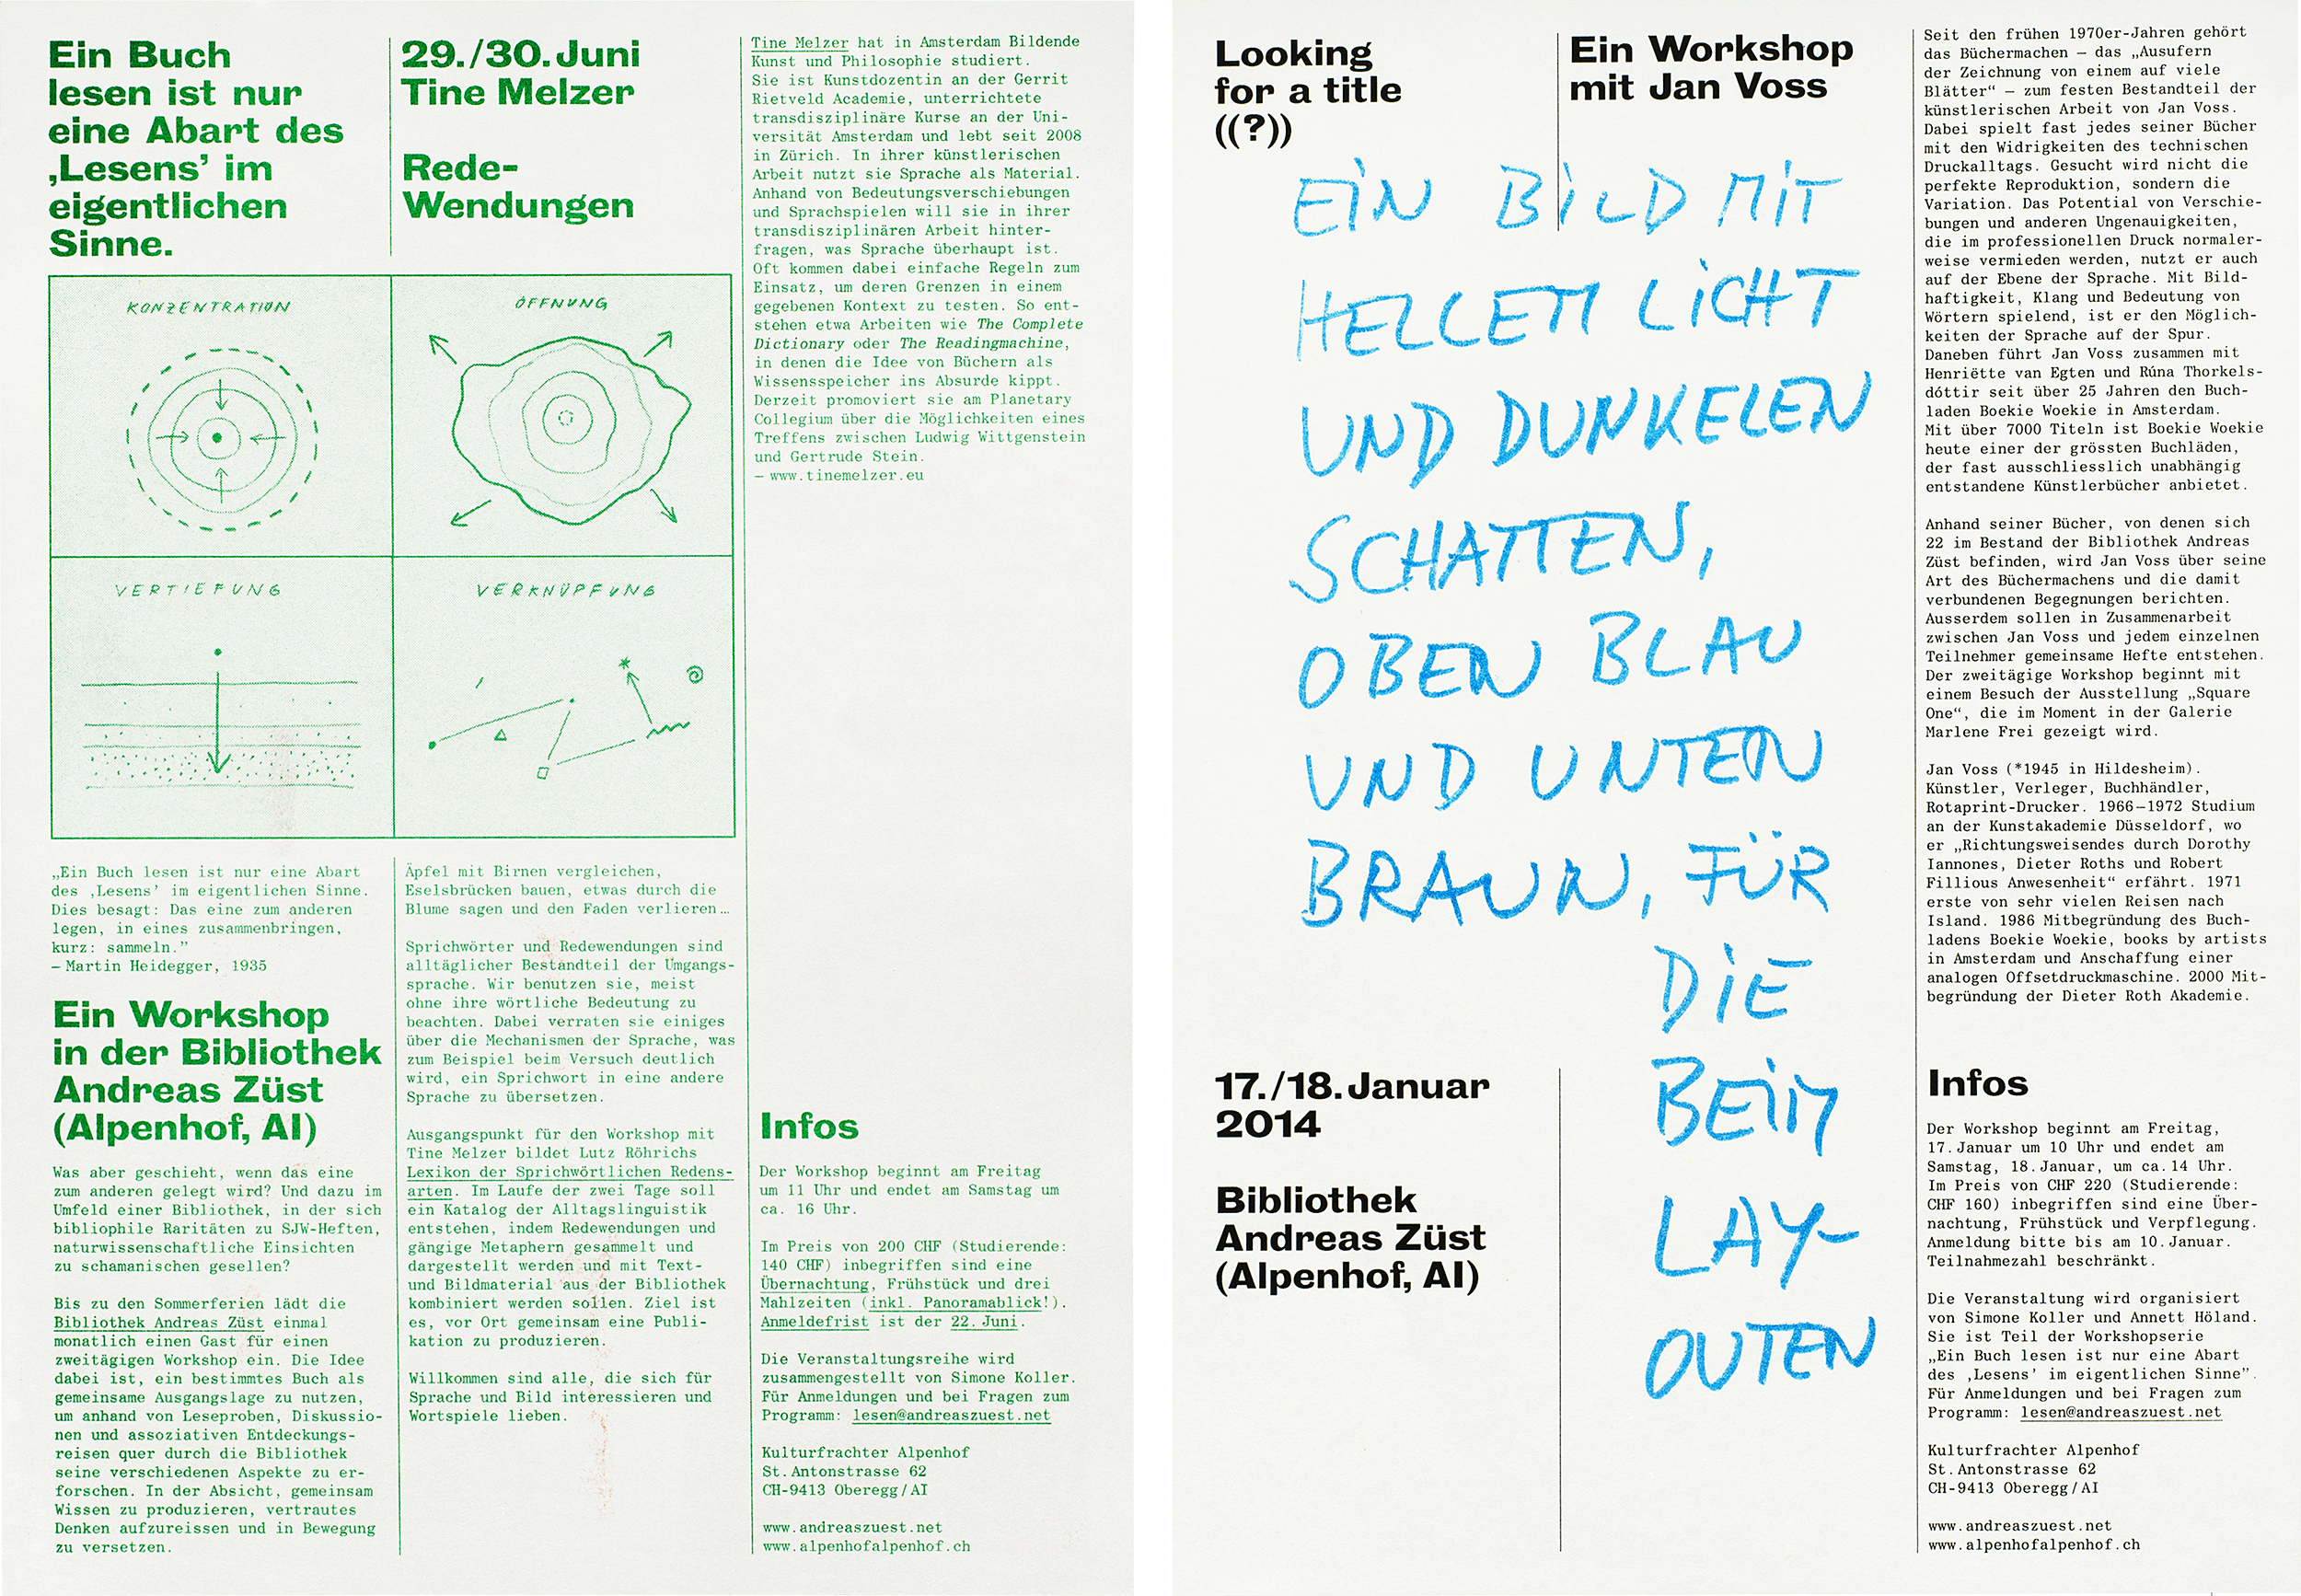 Ein Buch
lesen ist nur
eine Abart des
‚Lesens’ im
eigentlichen
Sinne.
29./30. Juni
Tine Melzer
Rede-
Wendungen
KONZENTRATION
ÖFFNUNG
VERTIEFUNG
VERKNÜPFUNG
„Ein Buch lesen ist nur eine Abart
des ‚Lesens’ im eigentlichen Sinne.
Dies besagt: Das eine zum anderen
legen, in eines zusammenbringen,
kurz: sammeln.”
– Martin Heidegger, 1935
Ein Workshop
in der Bibliothek
Andreas Züst
(Alpenhof, AI)
Was aber geschieht, wenn das eine
zum anderen gelegt wird? Und dazu im
Umfeld einer Bibliothek, in der sich
bibliophile Raritäten zu SJW-Heften,
naturwissenschaftliche Einsichten
zu schamanischen gesellen?
Bis zu den Sommerferien lädt die
Bibliothek Andreas Züst einmal
monatlich einen Gast für einen
zweitägigen Workshop ein. Die Idee
dabei ist, ein bestimmtes Buch als
gemeinsame Ausgangslage zu nutzen,
um anhand von Leseproben, Diskussio-
nen und assoziativen Entdeckungs-
reisen quer durch die Bibliothek
seine verschiedenen Aspekte zu er-
forschen. In der Absicht, gemeinsam
Wissen zu produzieren, vertrautes
Denken aufzureissen und in Bewegung
zu versetzen.
Äpfel mit Birnen vergleichen,
Eselsbrücken bauen, etwas durch die
Blume sagen und den Faden verlieren…
Sprichwörter und Redewendungen sind
alltäglicher Bestandteil der Umgangs-
sprache. Wir benutzen sie, meist
ohne ihre wörtliche Bedeutung zu
beachten. Dabei verraten sie einiges
über die Mechanismen der Sprache, was
zum Beispiel beim Versuch deutlich
wird, ein Sprichwort in eine andere
Sprache zu übersetzen.
Ausgangspunkt für den Workshop mit
Tine Melzer bildet Lutz Röhrichs
Lexikon der Sprichwörtlichen Redens-
arten. Im Laufe der zwei Tage soll
ein Katalog der Alltagslinguistik
entstehen, indem Redewendungen und
gängige Metaphern gesammelt und
dargestellt werden und mit Text-
und Bildmaterial aus der Bibliothek
kombiniert werden sollen. Ziel ist
es, vor Ort gemeinsam eine Publi-
kation zu produzieren.
Willkommen sind alle, die sich für
Sprache und Bild interessieren und
Wortspiele lieben.
Tine Melzer hat in Amsterdam Bildende
Kunst und Philosophie studiert.
Sie ist Kunstdozentin an der Gerrit
Rietveld Academie, unterrichtete
transdisziplinäre Kurse an der Uni-
versität Amsterdam und lebt seit 2008
in Zürich. In ihrer künstlerischen
Arbeit nutzt sie Sprache als Material.
Anhand von Bedeutungsverschiebungen
und Sprachspielen will sie in ihrer
transdisziplinären Arbeit hinter-
fragen, was Sprache überhaupt ist.
Oft kommen dabei einfache Regeln zum
Einsatz, um deren Grenzen in einem
gegebenen Kontext zu testen. So ent-
stehen etwa Arbeiten wie The Complete
Dictionary oder The Readingmachine,
in denen die Idee von Büchern als
Wissensspeicher ins Absurde kippt.
Derzeit promoviert sie am Planetary
Collegium über die Möglichkeiten eines
Treffens zwischen Ludwig Wittgenstein
und Gertrude Stein.
– www.tinemelzer.eu
Infos
Der Workshop beginnt am Freitag
um 11 Uhr und endet am Samstag um
ca. 16 Uhr.
Im Preis von 200 CHF (Studierende:
140 CHF) inbegriffen sind eine
Übernachtung, Frühstück und drei
Mahlzeiten (inkl. Panoramablick!).
Anmeldefrist ist der 22. Juni.
Die Veranstaltungsreihe wird
zusammengestellt von Simone Koller.
Für Anmeldungen und bei Fragen zum
Programm: lesen@andreaszuest.net
Kulturfrachter Alpenhof
St. Antonstrasse 62
CH-9413 Oberegg/AI
www.andreaszuest.net
www.alpenhofalpenhof.ch
Looking
for a title
((?))
Ein Workshop
mit Jan Voss
EIN BILD MIT
HELLEM LICHT
UND DUNKELEN
SCHATTEN,
OBEN BLAU
UND UNTEN
BRAUN, FÜR
DIE
BEIM
LAY-
OUTEN
17./18. Januar
2014
Bibliothek
Andreas Züst
(Alpenhof, AI)
Seit den frühen 1970er-Jahren gehört
das Büchermachen – das „Ausufern
der Zeichnung von einem auf viele
Blätter“ – zum festen Bestandteil der
künstlerischen Arbeit von Jan Voss.
Dabei spielt fast jedes seiner Bücher
mit den Widrigkeiten des technischen
Druckalltags. Gesucht wird nicht die
perfekte Reproduktion, sondern die
Variation. Das Potential von Verschie-
bungen und anderen Ungenauigkeiten,
die im professionellen Druck normaler-
weise vermieden werden, nutzt er auch
auf der Ebene der Sprache. Mit Bild-
haftigkeit, Klang und Bedeutung von
Wörtern spielend, ist er den Möglich-
keiten der Sprache auf der Spur.
Daneben führt Jan Voss zusammen mit
Henriëtte van Egten und Rúna Thorkels-
dóttir seit über 25 Jahren den Buch-
laden Boekie Woekie in Amsterdam.
Mit über 7000 Titeln ist Boekie Woekie
heute einer der grössten Buchläden,
der fast ausschliesslich unabhängig
entstandene Künstlerbücher anbietet.
Anhand seiner Bücher, von denen sich
22 im Bestand der Bibliothek Andreas
Züst befinden, wird Jan Voss über seine
Art des Büchermachens und die damit
verbundenen Begegnungen berichten.
Ausserdem sollen in Zusammenarbeit
zwischen Jan Voss und jedem einzelnen
Teilnehmer gemeinsame Hefte entstehen.
Der zweitägige Workshop beginnt mit
einem Besuch der Ausstellung „Square
One“, die im Moment in der Galerie
Marlene Frei gezeigt wird.
Jan Voss (*1945 in Hildesheim).
Künstler, Verleger, Buchhändler,
Rotaprint-Drucker. 1966–1972 Studium
an der Kunstakademie Düsseldorf, wo
er „Richtungsweisendes durch Dorothy
Iannones, Dieter Roths und Robert
Fillious Anwesenheit“ erfährt. 1971
erste von sehr vielen Reisen nach
Island. 1986 Mitbegründung des Buch-
ladens Boekie Woekie, books by artists
in Amsterdam und Anschaffung einer
analogen Offsetdruckmaschine. 2000 Mit-
begründung der Dieter Roth Akademie.
Infos
Der Workshop beginnt am Freitag,
17. Januar um 10 Uhr und endet am
Samstag, 18. Januar, um ca. 14 Uhr.
Im Preis von CHF 220 (Studierende:
CHF 160) inbegriffen sind eine Über-
nachtung, Frühstück und Verpflegung.
Anmeldung bitte bis am 10. Januar.
Teilnahmezahl beschränkt.
Die Veranstaltung wird organisiert
von Simone Koller und Annett Höland.
Sie ist Teil der Workshopserie
„Ein Buch lesen ist nur eine Abart
des ‚Lesens’ im eigentlichen Sinne”.
Für Anmeldungen und bei Fragen zum
Programm: lesen@andreaszuest.net
Kulturfrachter Alpenhof
St. Antonstrasse 62
CH-9413 Oberegg/AI
www.andreaszuest.net
www.alpenhofalpenhof.ch